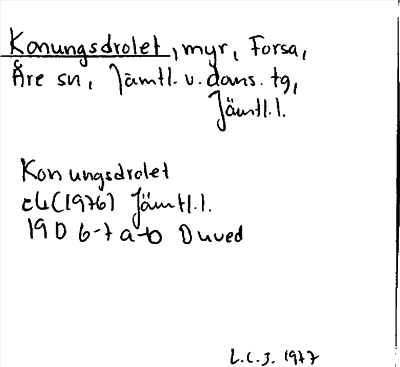 Konungsdrolet, myr, Forsa,
Åre sn, Jämtl. v. doms. tg,
Jämtl.l.
Konungsdrolet
ek (1976) Jämtl.l.
19D 6-7 a-b Duved
L.C.J. 1977